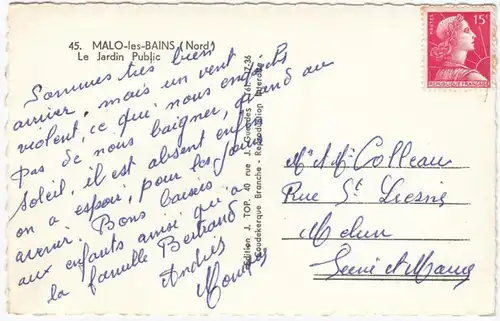 45. MALO-les-BAINS (Nord)
Le Jardin Public
Sommes très bien
arrivés, mais un vent
violent, ce qui nous empêche
pas de nous baigner, quand au
soleil, il est absent enfin
on a espoir, pour les jours
avenir. Bons baisers
aux enfants ainsi qu'à
la famille Bertrand
Andrée
Edition J. TOP. 40 rue J. Guesdes - Tél. 17-36
Coudekerque Branche - Reproduction Interdite
POSTES
15F
Mr Mme Colleau
Rue St Liesne
Melun
Seine et Marne